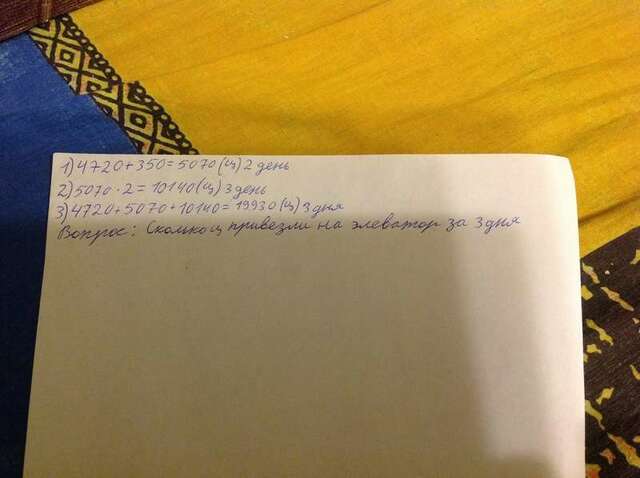 1) 4720+350=5070(ц) 2 день
2) 5070·2=10140(ц) 3 день
3) 4720+5070+10140=19930(ц) 3 дня
Вопрос: Сколько ц привезли на элеватор за 3 дня